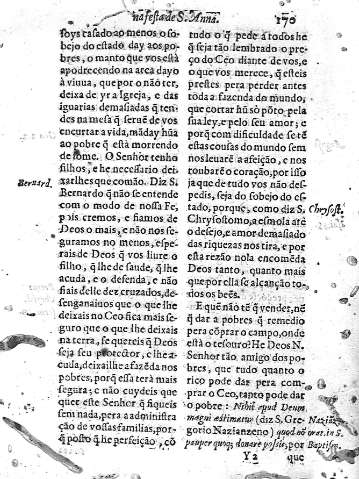 na festa de S. Anna. 170
soys casado ao menos o so-
bejo do estado day aos po-
bres, o manto que vos està
apodrecendo na arca dayo
à viuua, que por o não ter,
deixa de yr a Igreja, e das
iguarias demasiadas q̃ ten-
des na mesa q̃ seruẽ de vos
encurtar a vida, mãday hũa
ao pobre q̃ està morrendo
de fome. O Senhor tenho
filhos, e he necessario dei-
xarlhes que comão. Diz S.
Bernardo q̃ não se entende
com o modo de nossa Fe,
pois cremos, e fiamos de
Deos o mais, e não nos se-
guramos no menos, espe-
rais de Deos q̃ vos liure o
filho, q̃ lhe de saude, q̃ lhe
acuda, e o defenda, e não
fiais delle dez cruzados, de-
senganaiuos que o que lhe
deixais no Ceo fica mais se-
guro que o que lhe deixais
na terra, se quereis q̃ Deos
seja seu protector, e lhe a-
cuda, deixailhe a fazẽda nos
pobres, porq̃ essa terà mais
segura; e não cuydeis que
quer este Senhor q̃ fiqueis
sem nada, pera a administra-
ção de vossas familias, por-
q̃ posto q̃ he perfeição, cõ
Bernard.
tudo o q̃ pede a todos he
q̃ seja tão lembrado o pre-
ço do Ceo diante de vos, e
o que vos merece, q̃ esteis
prestes pera perder antes
toda a fazenda do mundo,
que cortar hũ so põto, pela
sua ley, e pelo seu amor; e
porq̃ com dificuldade se tẽ
estas cousas do mundo sem
nos leuarẽ a afeição, e nos
roubarẽ o coração, por isso
ja que de tudo vos não des-
pedis, seja do sobejo do es-
tado, porque, como diz S.
Chrysostomo, a esmola atè
o desejo, e amor demasiado
das riquezas nos tira, e por
esta rezão nola encomẽda
Deos tanto, quanto mais
que por ella se alcanção to-
dos os bẽs.
E quẽ não tẽ q̃ vender, nẽ
q̃ dar a pobres q̃ remedio
pera cõprar o campo, onde
està o tesouro? He Deos N.
Senhor tão amigo dos po-
bres, que tudo quanto o
rico pode dar pera com-
prar o Ceo, tanto pode dar
o pobre: Nihil apud Deum
magni estimatur (diz S. Gre-
gorio Nazianzeno) quod nõ
pauper quoq; donare possit, por
Y 2 que
Chrysost.
Nazian.
orat. in S.
Baptism.